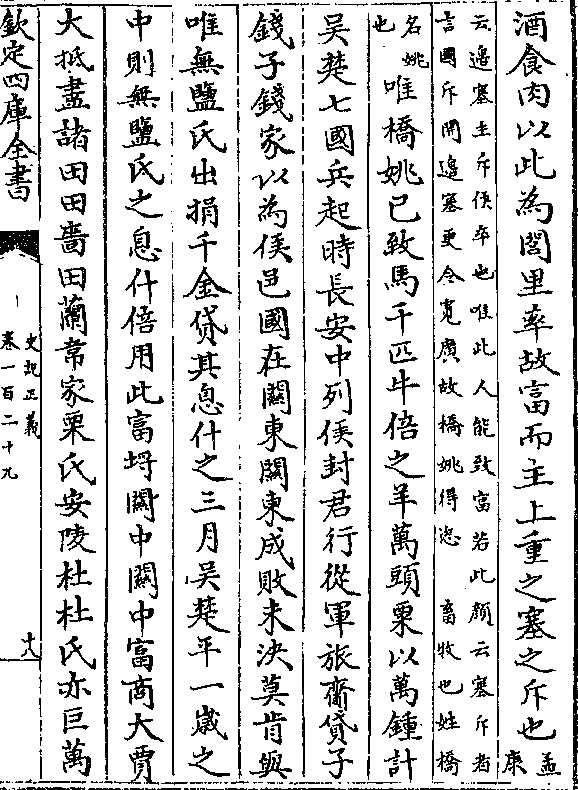 酒食肉以此為閭里率故富而主上重之塞之斥也孟康
云邊塞主斥候卒也唯此人能致富若此顔云塞斥者
言國斥開邊塞更令寛廣故橋姚得恣 畜牧也姓橋
名姚也 唯橋姚已致馬千匹牛倍之羊萬頭粟以萬鍾計
吳楚七國兵起時長安中列侯封君行從軍旅齎貸子
錢子錢家以為侯邑國在關東關東成敗未決莫肯與
唯無鹽氏出捐千金貸其息什之三月吳楚平一歲之
中則無鹽氏之息什倍用此富埒關中關中富商大賈
大抵盡諸田田嗇田蘭韋家栗氏安陵杜杜氏亦巨萬
欽定四庫全書
史記正義
卷一百二十九
十八